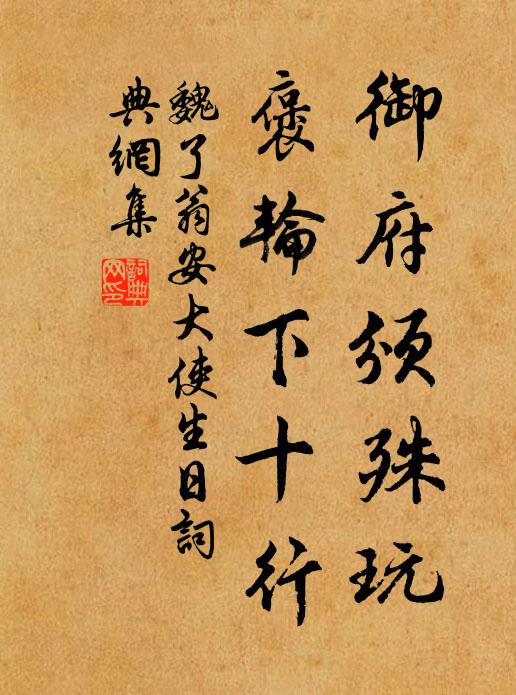 御府頒殊玩
褒輪下十行
魏了翁安大使生日詞
典網集
詞典網印